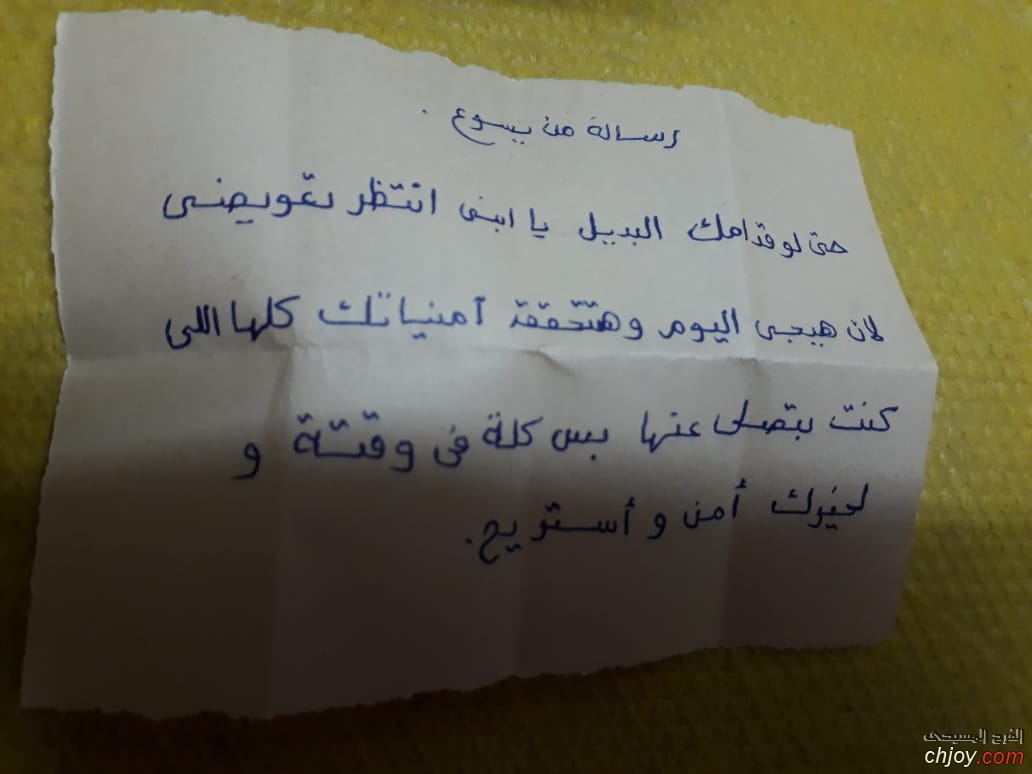 رسالة من يسوع .
حتى لو قدامك البديل يا ابنى انتظر تعويضى
لان هيجى اليوم وهتتحقق أمنياتك كلها اللى
كنت بتصلى عنها بس كلة فى وقتة و
لخيرك أمن و أستريح.
الفرح المسيحى
chjoy.com